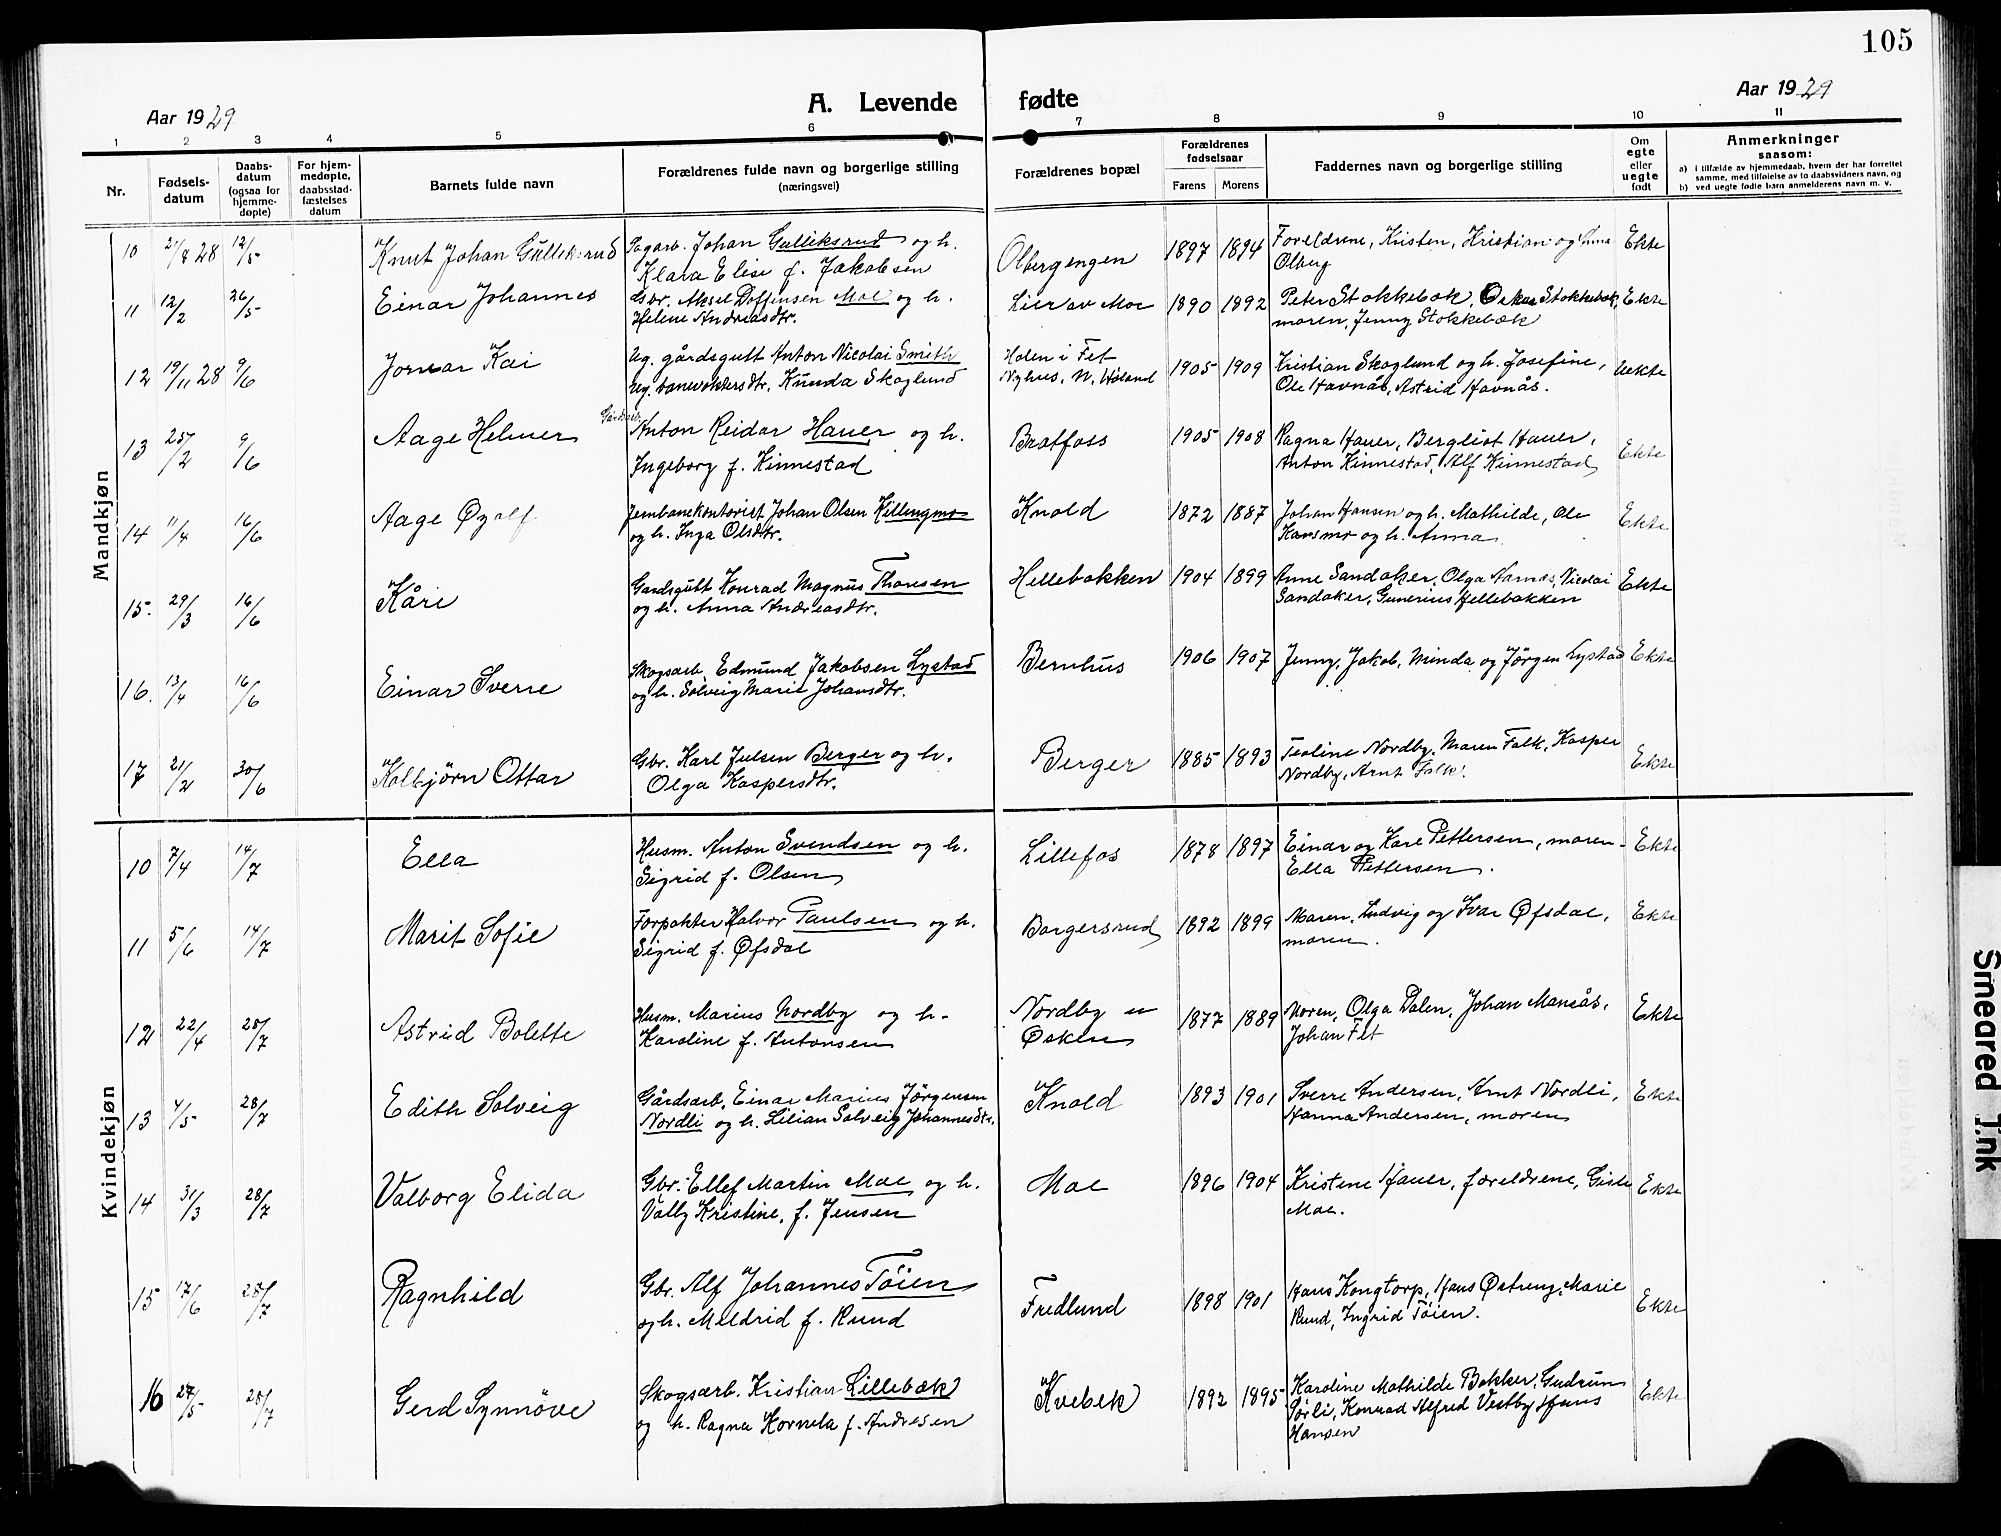 105
Aar 1929
A. Levende fødte
Aar 1929
1 2 3 4 5 6 7 8 9 10 11
Nr.
Fødsels-
datum
Daabs-
datum
(ogsaa for
hjemme-
døpte)
For hjem-
medøpte,
daabsstad-
fæstelses
datum
Barnets fulde navn
Forældrenes fulde navn og borgerlige stilling
(næringsvei)
Forældrenes bopæl
Forældrenes
fødselsaar
Farens Morens
Faddernes navn og borgerlige stilling
Om
egte
eller
uegte
født
Anmerkninger
saasom:
a) i tilfælde av hjemmedaab, hvem der har forrettet
samme, med tilføielse av to daabsvidners navn, og
b) ved uegte fødte barn anmelderens navn m. v.
Mandkjøn
10 21/8 28 12/5 Knut Johan Gulliksrud Johan Gulliksrud og h. Olbergengen 1897 1894 Foreldrene, Kristen, Kristian og Anna Ekte
Klara Elise f. Jakobsen Olberg
11 12/2 26/5 Einar Johannes Gbr. Aksel Doffensen Moe og h. Lier av Moe 1890 1892 Peter Stokkebæk, Oskar Stokkebæk, Ekte
Heline Andreasdtr. moren, Jenny Stokkebæk
12 19/11 28 9/6 Jornar Kai Ug. gårdsgutt Anton Nicolai Smith Holen i Fet 1905 1909 Kristian Skoglund og h. Josefine, Uekte
Ug. banevokterdtr. Kunda Skoglund Nyhus, N. Høland Ole Havnås, Astrid Havnås.
13 25/2 9/6 Aage Helmer Gårdsarb. Anton Reidar Hauer og h. Bratfoss 1905 1908 Ragna Hauer, Bergliot Hauer, Ekte
Ingeborg f. Kinnestad Anton Kinnestad, Alf Kinnestad
14 11/4 16/6 Aage Øyolf Jernbanekontorist Johan Olsen Killingmo Knold 1872 1887 Johan Hansen og h. Mathilde, Ole Ekte
og h. Inga Olsdtr. Hansmo og h. Anna
15. 29/3 16/6 Kåre Gardsgutt Konrad Magnus Thoresen Hellebakken 1904 1899 Anne Sandaker, Olga Aarnes, Nicolai Ekte
og h. Anna Andreasdtr. Sandaker, Gunerius Hellebakken
16. 13/4 16/6 Einar Sverre Skogsarb. Edmund Jakobsen Lystad Bernhus 1906 1907 Jenny, Jakob, Minda og Jörgen Lystad Ekte
og h. Solveig Marie Johansdtr.
17 21/2 30/6 Kolbjörn Ottar Gbr. Karl Julsen Berger og h. Berger 1885 1893 Teoline Nordby, Maren Falk, Kasper Ekte
Olga Kaspersdtr. Nordby, Arnt Falk.
Kvindekjøn
10 7/4 14/7 Ella Husm. Anton Svendsen og h. Lillefos 1878 1897 Einar og Kare Pettersen, moren Ekte
Sigrid f. Olsen Ella Pettersen.
11 5/6 14/7 Marit Sofie Forpakter Halvor Paulsen og h. Borgersrud 1892 1899 Maren, Ludvig og Ivar Øfsdal, Ekte
Sigrid f. Øfsdal moren.
12 22/4 28/7 Astrid Bolette Husm. Marius Nordby og h. Nordby u 1877 1889 Moren, Olga Dalen, Johan Mansås, Ekte
Karoline f. Antonsen Øsken Johan Fet
13 4/5 28/7 Edith Solveig Gårdsarb. Einar Marius Jörgensen Knold 1893 1901 Sverre Andersen, Arnt Nordli, Ekte
Nordli og h. Lilian Solveig Johannesdtr. Hanna Andersen, moren
14 31/3 28/7 Valborg Elida Gbr. Ellef Martin Moe og h. Moe 1896 1904 Kristene Hauer, foreldrene, Gisle Ekte
Valby Kristine, f. Jensen Moe.
15 17/6 28/7 Ragnhild Gbr. Alf Johannes Töien Fredlund 1898 1901 Hans Kongtorp, Hans Østreng, Marie Ekte
og h. Meldrid f. Rund Rund, Ingrid Töien.
16 27/5 28/7 Gerd Synnöve Skogsarb. Kristian Lillebæk Kvebek 1892 1895 Karoline Mathilde Bakker, Gudrun Ekte
og h. Ragna Kornela f. Andresen Sörli, Konrad Alfred Vestby, Hans
Hansen
Smeared Ink